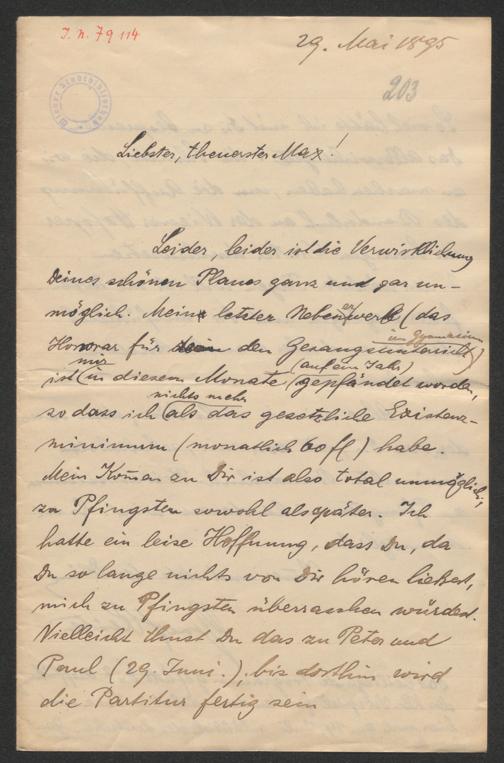 I. N. 79114
29. Mai 1895
203
Liebster, theuerster Max!
Leider, leider ist die Verwirklichung
Deines schönen Planes ganz und gar un-
möglich. Mein letzter Nebenerwerb (das
Honorar für den Gesangsunterricht im Gymnasium)
ist mir in diesem Monate (auf ein Jahr) gepfändet worden,
so dass ich nichts mehr als das gesetzliche Existenz-
minimum (monatlich 60 fl) habe.
Mein Kom̄en zu Dir ist also total unmöglich,
zu Pfingsten sowohl als später. Ich
hatte ein leise Hoffnung, dass Du, da
Du so lange nichts von Dir hören ließest,
mich zu Pfingsten überraschen würdest.
Vielleicht thust Du das zu Peter und
Paul (29. Juni.), bis dorthin wird
die Partitur fertig sein